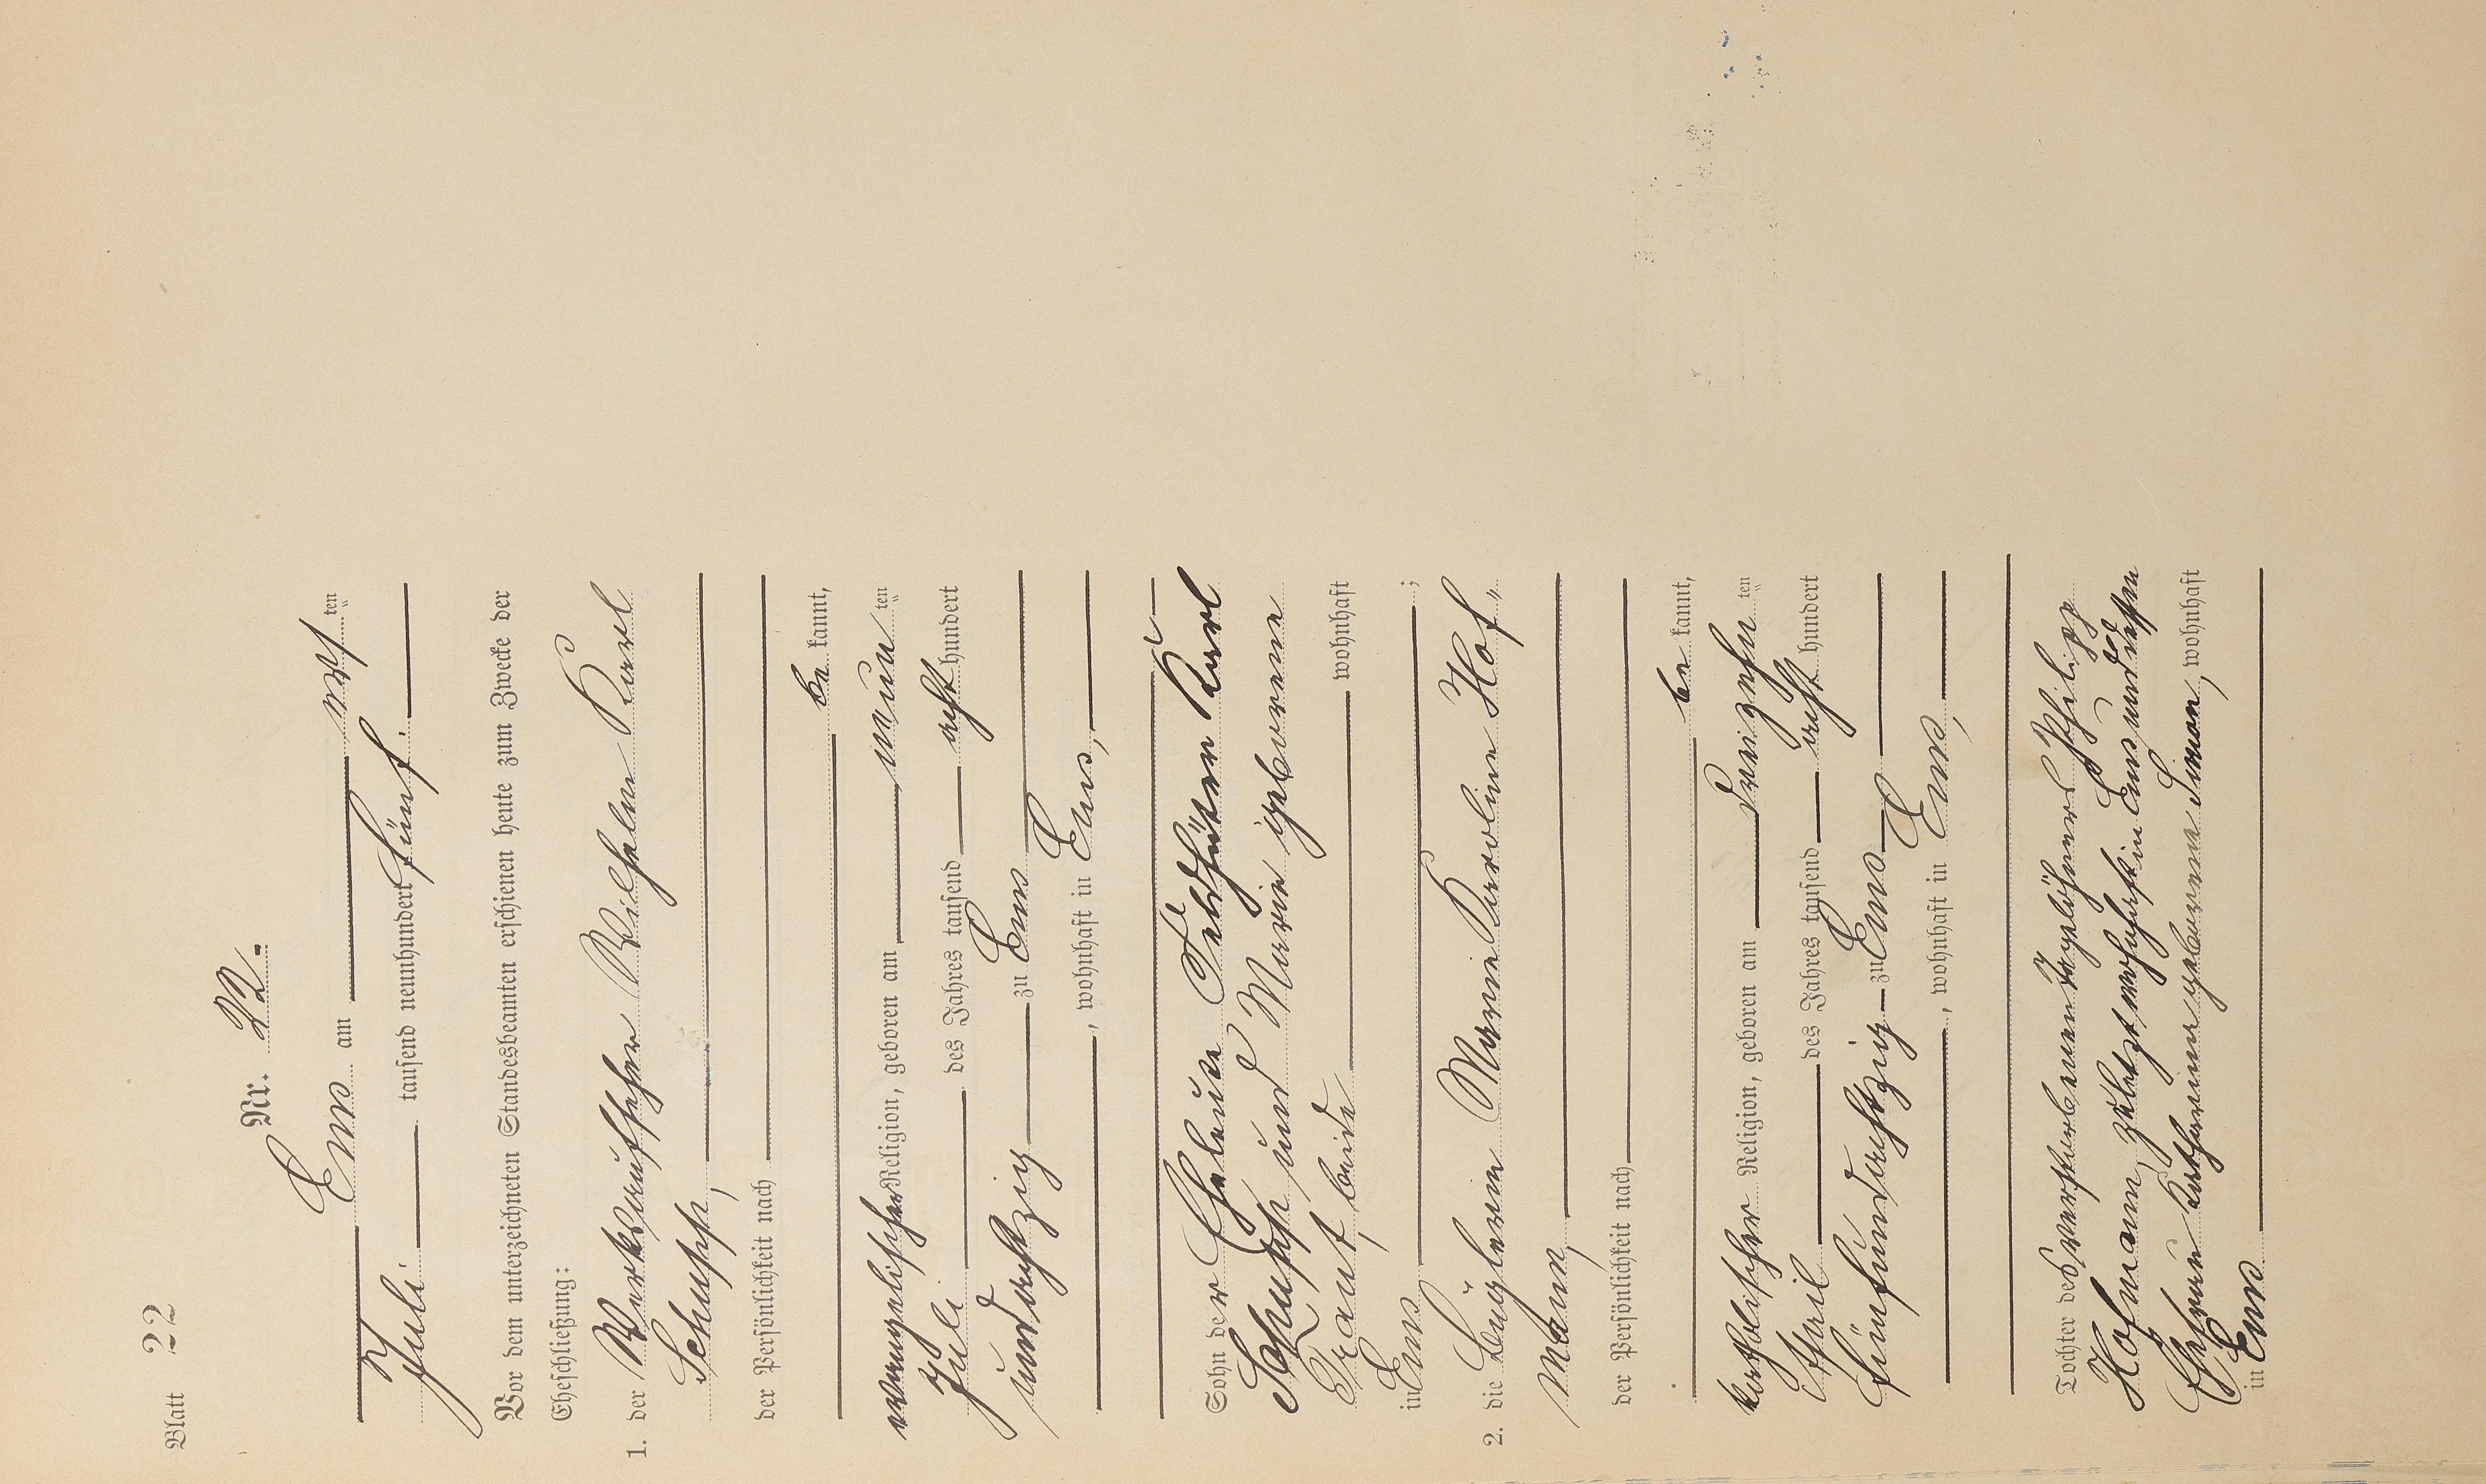 Blatt 22
Nr. 22.
Ems am acht ten
Juli tausend neunhundert fünf.
Vor dem unterzeichneten Standesbeamten erschienen heute zum Zwecke der
Eheschließung:
1. der Werkbautscher Wilhelm Karl
Schupp,
der Persönlichkeit nach
be kannt,
evangelischer Religion, geboren am neun ten
Juli des Jahres tausend acht hundert
undachtzig zu Ems
, wohnhaft in Ems,
Sohn der Eheleute Feldhüter Karl
Schupp und Marie geborene
Kraut, beide wohnhaft
in Ems ;
2. die Büglerin Marie Karoline Hof„
mann,
der Persönlichkeit nach
be kannt,
katholischer Religion, geboren am dreizehn ten
April des Jahres tausend acht hundert
fünfundachtzig zu Ems
, wohnhaft in Ems,
Tochter des verstorbenen Tagelöhners Philipp
Hofmann, zuletzt wohnhaft in Ems und dessen
Ehefrau Katharina geborene Simon, wohnhaft
in Ems